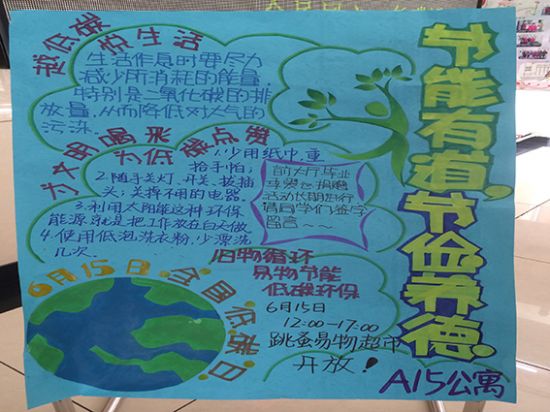 越低碳
悦生活
生活作息时要尽力
减少所消耗的能量,
特别是二氧化碳的排
放量,从而降低对大气的
污染.
为文明喝彩
为低碳点赞
1.少用纸巾,重
拾手帕;
2.随手关灯、开关、拔插
头;关掉不用的电器.
3.利用太阳能这种环保
能源,就是把工作放在白天做
4.使用低泡洗衣粉,少漂洗
几次.
前大厅毕业
季爱心捐赠
活动长期进行
请同学们签字
留言~~
旧物循环
易物节能
低碳环保
6月15日
12:00—17:00
跳蚤易物超市
开放!
6月15日,全国低碳日
节能有道,节俭养德.
A15公寓